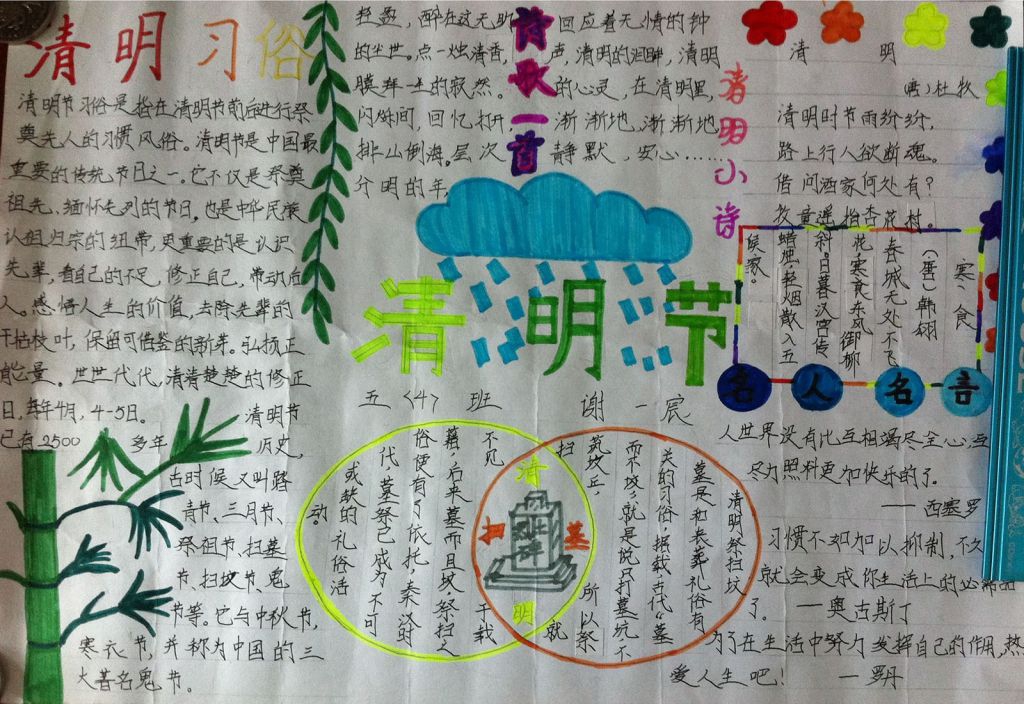 清明习俗
清明节习俗是指在清明节前后进行祭
奠先人的习惯风俗。清明节是中国最
重要的传统节日之一。它不仅是祭奠
祖先、缅怀先列的节日,也是中华民族
认祖归宗的纽带,更重要的是认识
先辈,看自己的不足,修正自己,带动后
人。感悟人生的价值,去除先辈的
干枯枝叶,保留可借鉴的新芽。弘扬正
能量。世世代代,清清楚楚的修正
日,每年4月,4-5日。 清明节
已有2500 多年 历史,
古时候又叫踏
青节、三月节、
祭祖节、扫墓
节、扫坟节、鬼
节等。它与中秋节,
寒衣节,并称为中国的三
大著名鬼节。
诗歌一首
轻盈,醉在这无助
的尘世。点一烛清香,
膜拜一生的寂然。
闪烁间,回忆打开,一
排山倒海。层次
分明的年
回应着无情的钟
声,清明的泪眸,清明
的心灵,在清明里,
渐渐地、渐渐地
静默,安心……
清明小诗
清 明
唐)杜牧
清明时节雨纷纷,
路上行人欲断魂。
借问酒家何处有?
牧童遥指杏花村。
清明节
五〈4〉班 谢一宸
寒食
(唐)韩翃
春城无处不飞
花,寒食东风御柳
斜。日暮汉宫传
蜡烛,轻烟散入五
侯家。
名人名言
人世界没有比互相竭尽全心,互
尽力照料更加快乐的了。
——西塞罗
习惯不如加以抑制,不久
就会变成你生活上的必需品
了。 —奥古斯丁
为了在生活中努力发挥自己的作用,热
爱人生吧! —罗丹
清明祭扫坟
墓是和丧葬礼俗有
关的习俗,据载,古代“墓
而不坟”,就是说只打墓坑,不
筑坟丘, 所以祭
扫 就
不见 于载
藉,后来墓而且坟,祭扫之
俗便有了依托,秦汉时
代,墓祭已成为不可
或缺的礼俗活
动。
清
扫 墓
明
烈士
碑